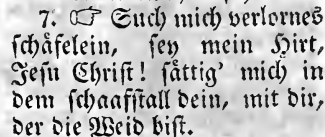 7. ☞ Such mich verlornes
schäfelein, sey mein Hirt,
Jesu Christ! sättig' mich in
dem schaafstall dein, mit dir,
der die Weid bist.